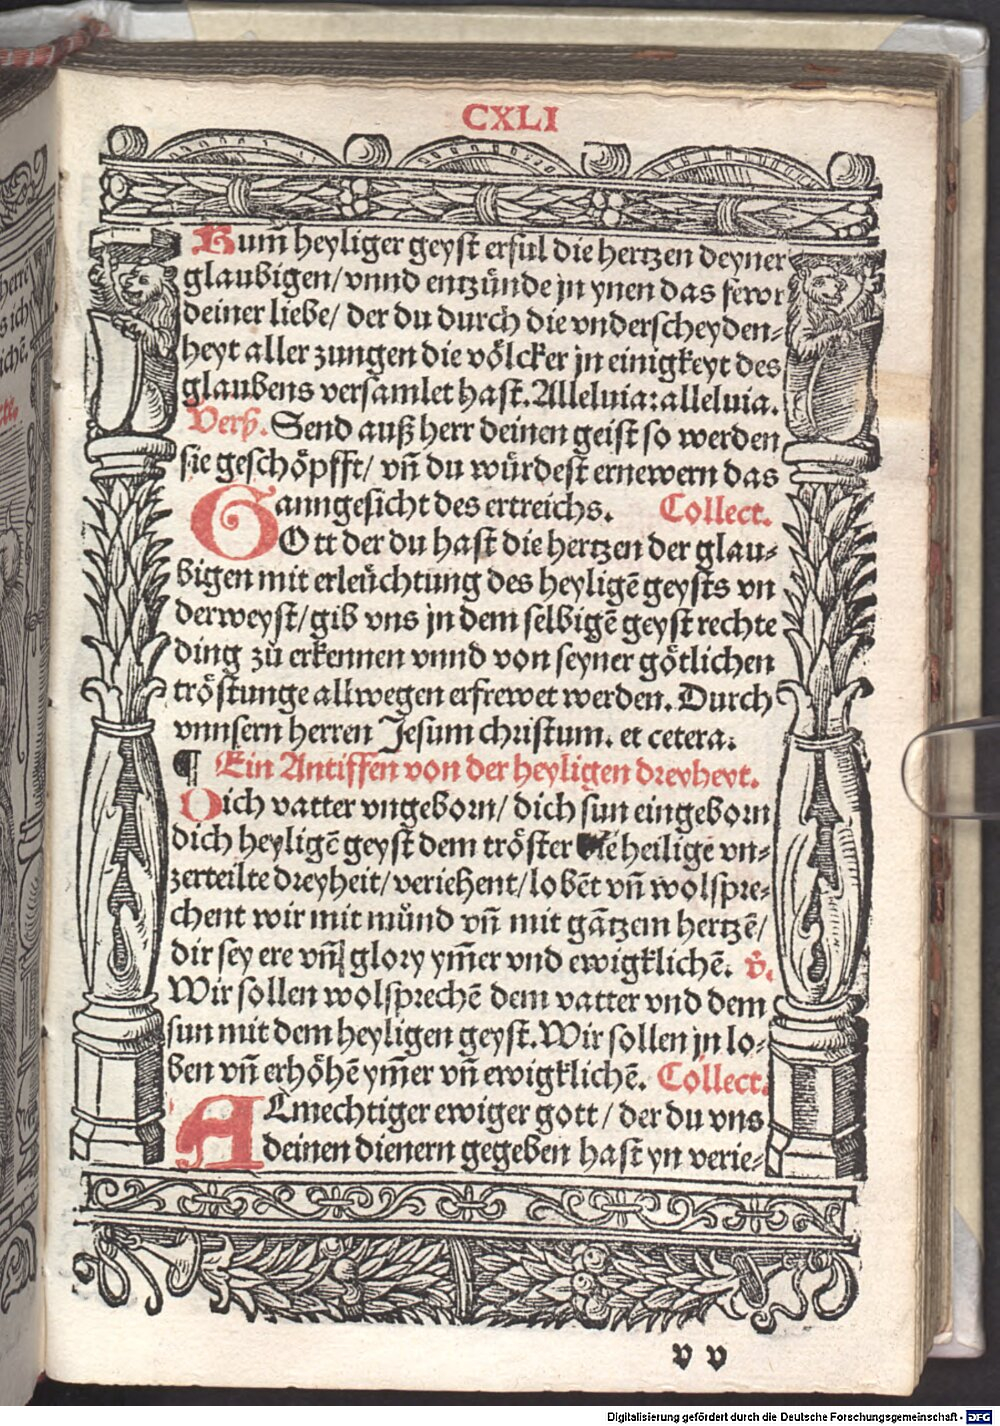 CXLI
Kum̃ heyliger geyst erful die hertzen deyner
glaubigen/ vnnd entzünde jn ynen das fewr
deiner liebe/ der du durch die vnderscheyden⸗
heyt aller zungen die völcker jn einigkeyt des
glaubens versamlet hast. Alleluia: alleluia.
Verß. Send auß herr deinen geist so werden
sie geschöpfft/ vñ du würdest ernewern das
ganngesicht des ertreichs. Collect.
GOtt der du hast die hertzen der glau⸗
bigen mit erleüchtung des heyligē geysts vn
derweyst/ gib vns jn dem selbigē geyst rechte
ding zů erkennen vnnd von seyner götlichen
tröstunge allwegen erfrewet werden. Durch
vnnsern herren Jesum christum. et cetera.
¶ Ein Antiffen von der heyligen dreyheyt.
Dich vatter vngeborn/ dich sun eingeborn
dich heyligē geyst dem tröster die heilige vn⸗
zerteilte dreyheit/ veriehent/ lobēt vñ wolspre⸗
chent wir mit můnd vñ mit gātzem hertzē/
dir sey ere vñ glory ym̃er vnd ewigklichē. v̊.
Wir sollen wolsprechē dem vatter vnd dem
sun mit dem heyligen geyst. Wir sollen jn lo⸗
ben vñ erhöhē ym̃er vñ ewigklichē. Collect.
ALmechtiger ewiger gott/ der du vns
deinen dienern gegeben hast yn verie⸗
v v
Digitalisierung gefördert durch die Deutsche Forschungsgemeinschaft - DFG